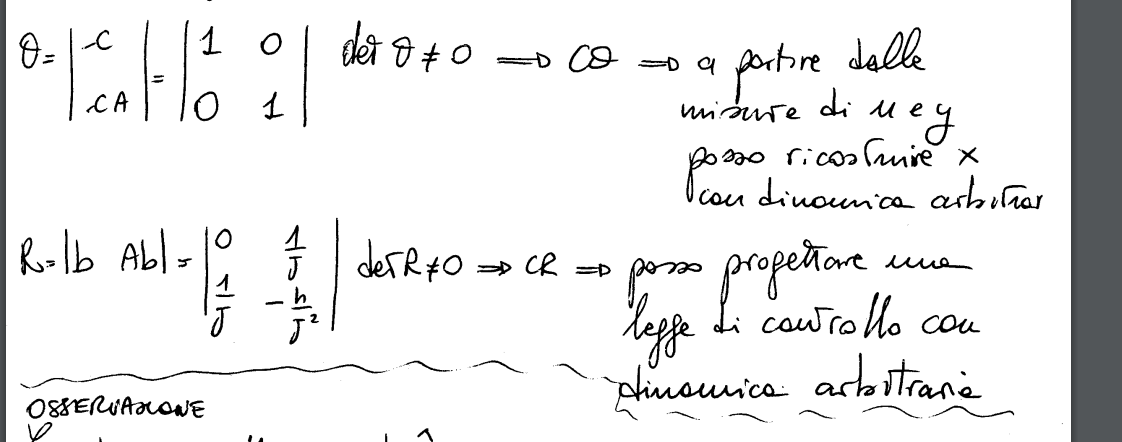 θ = | -C | = | 1 0 | det θ ≠ 0 ⇒ CO ⇒ a partire dalle
| -CA | | 0 1 | misure di u e y
posso ricostruire x
con dinamica arbitrar
R = |b Ab| = | 0 1/J | det R ≠ 0 ⇒ CR ⇒ posso progettare una
| 1/J -h/J² | legge di controllo con
dinamica arbitraria
OSSERVAZIONE